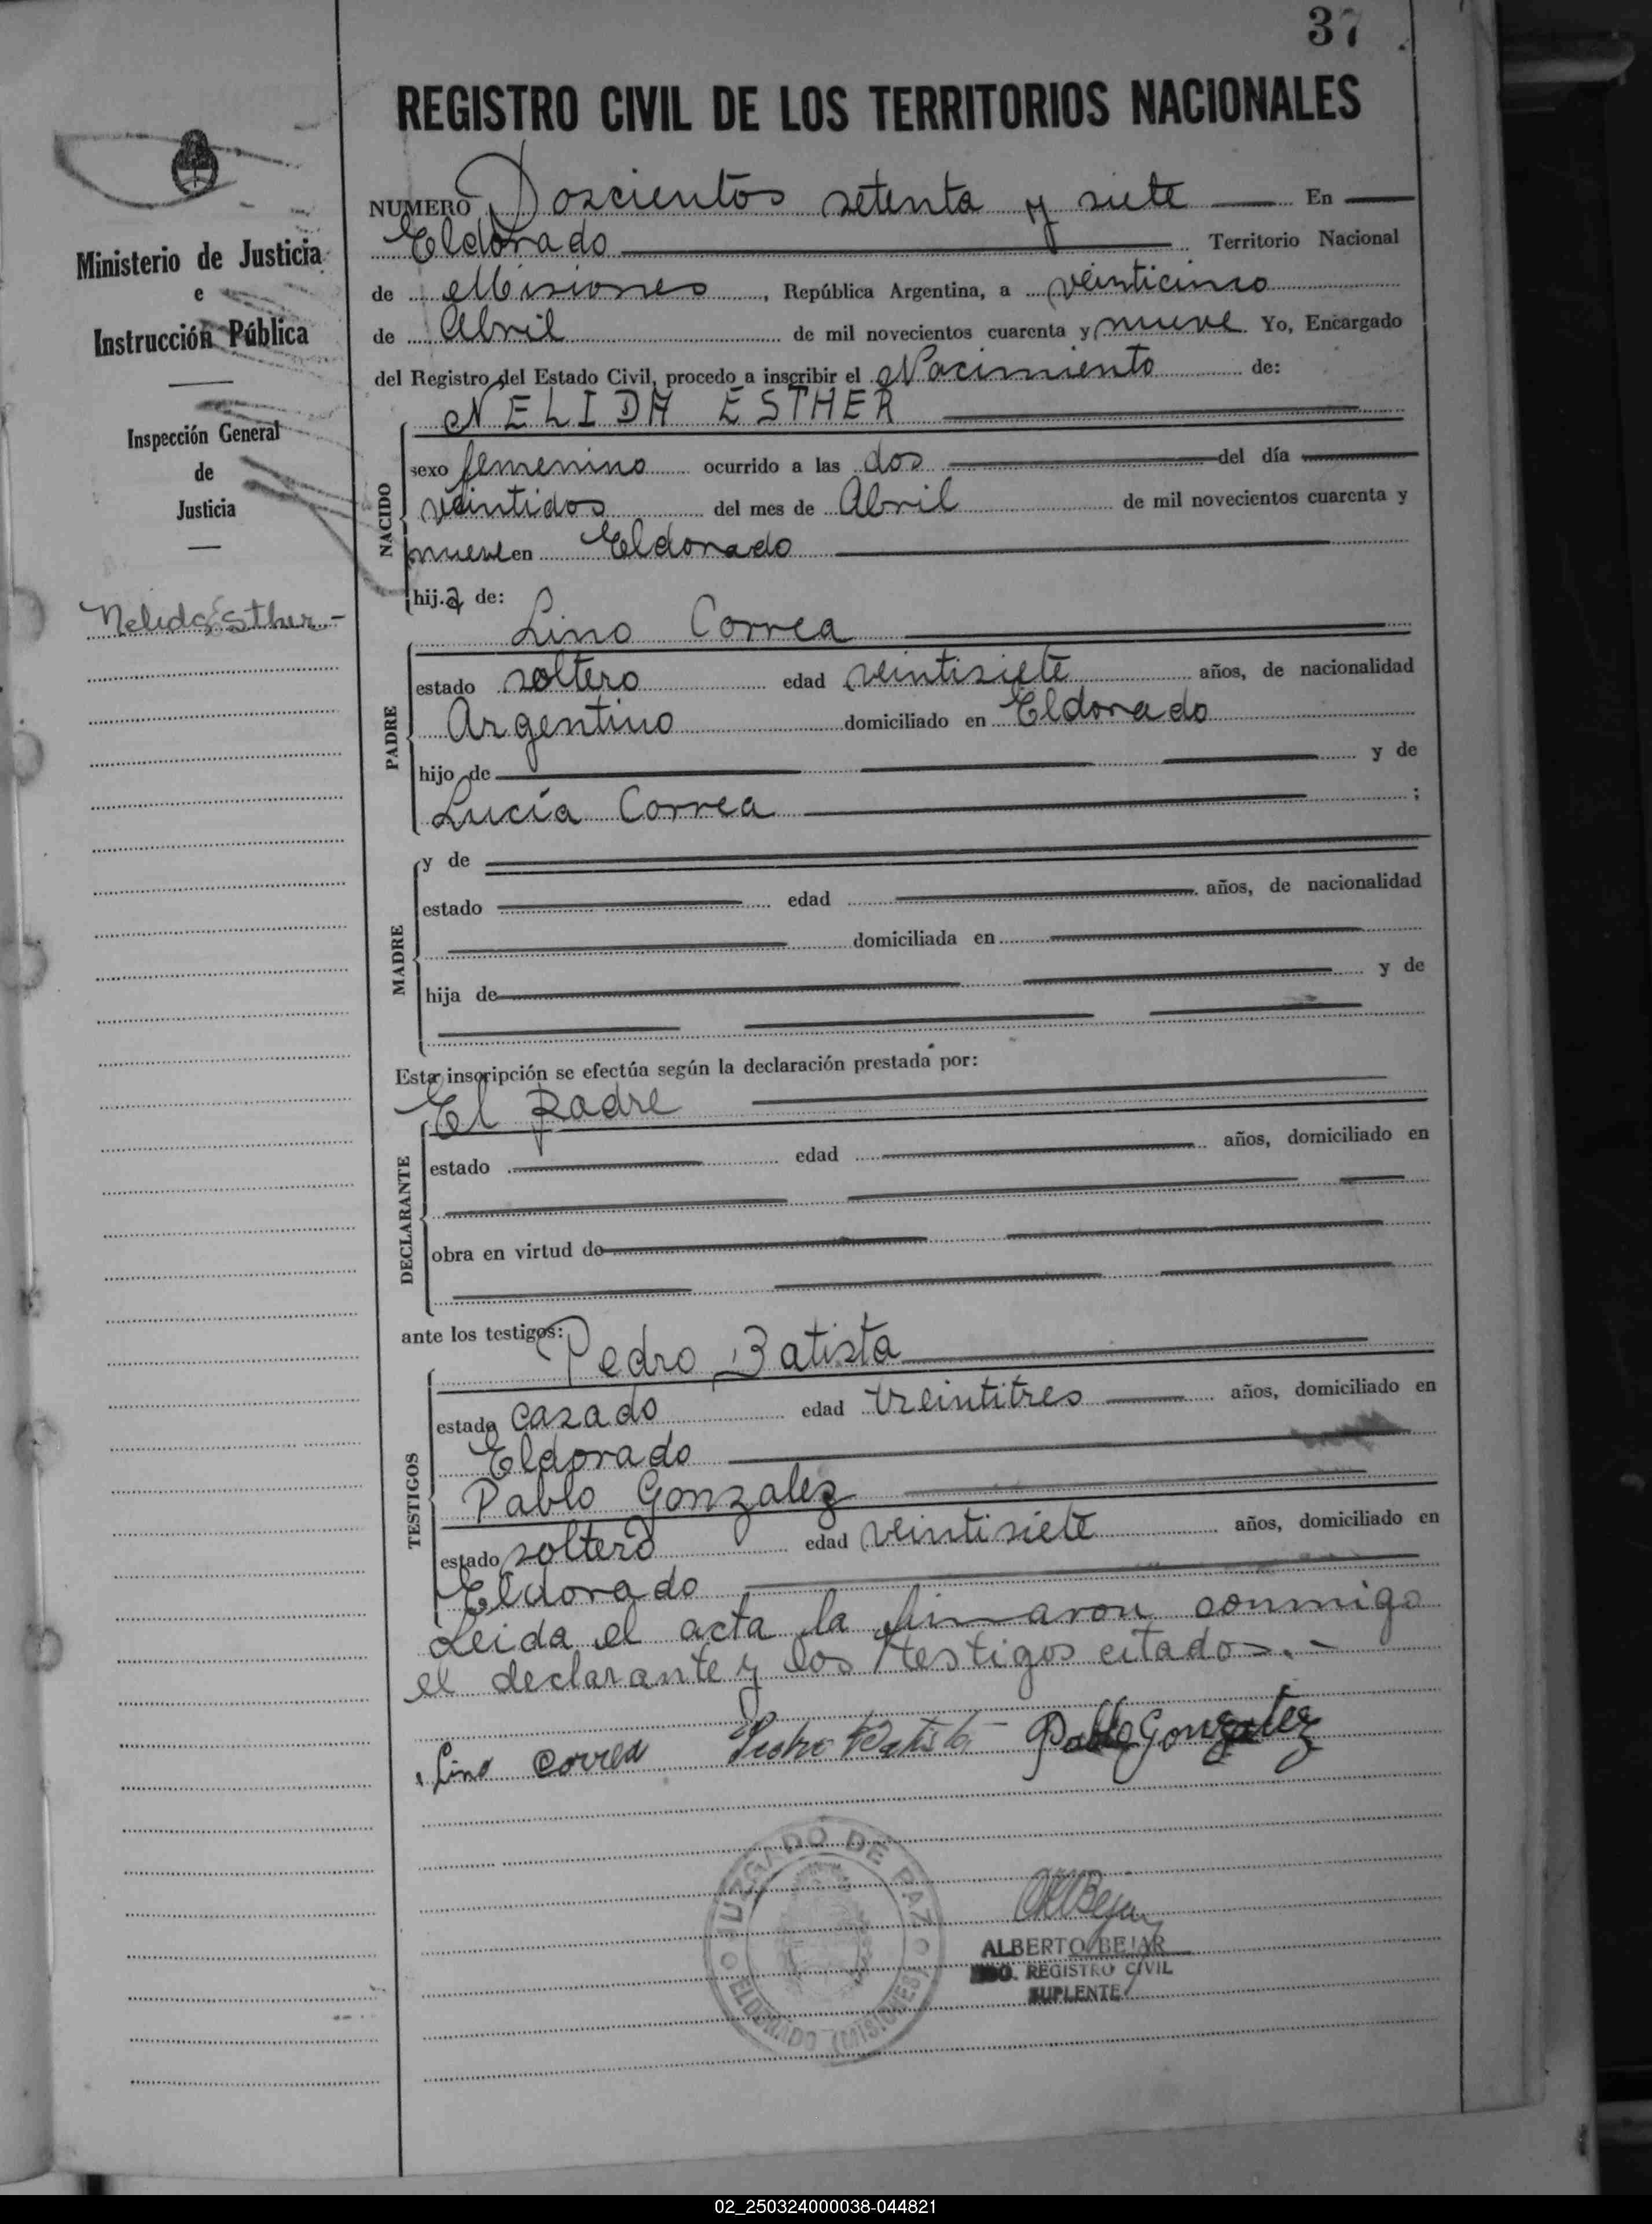 37
REGISTRO CIVIL DE LOS TERRITORIOS NACIONALES
Ministerio de Justicia
e
Instrucción Pública
Inspección General
de
Justicia
Nelida Esther.-
NUMERO Doscientos setenta y siete En
Eldorado Territorio Nacional
de Misiones, República Argentina, a veinticinco
de Abril de mil novecientos cuarenta y nueve. Yo, Encargado
del Registro del Estado Civil, procedo a inscribir el Nacimiento de:
NELIDA ESTHER
NACIDO
sexo femenino ocurrido a las dos del día
veintidos del mes de Abril de mil novecientos cuarenta y
nueve en Eldorado
hij.a de:
Lino Correa
PADRE
estado soltero edad veintisiete años, de nacionalidad
Argentino domiciliado en Eldorado
hijo de y de
Lucía Correa ;
MADRE
y de
estado edad años, de nacionalidad
domiciliada en
hija de y de
Esta inscripción se efectúa según la declaración prestada por:
El Padre
DECLARANTE
estado edad años, domiciliado en
obra en virtud de
ante los testigos:
Pedro Batista
TESTIGOS
estado casado edad treintitres años, domiciliado en
Eldorado
Pablo Gonzalez
estado soltero edad veintisiete años, domiciliado en
Eldorado
Leida el acta la firmaron conmigo
el declarante y los testigos citados.-
Lino Correa Pedro Batista Pablo Gonzalez
JUZGADO DE PAZ
ELDORADO (MISIONES)
ALBERTO BEJAR
REGISTRO CIVIL
SUPLENTE
02_250324000038-044821